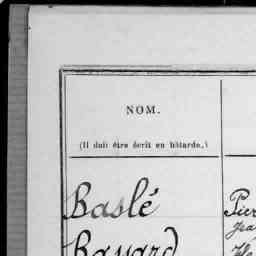 NOM.
(Il doit être écrit en bâtarde.)
Baslé
Pier
Bayard